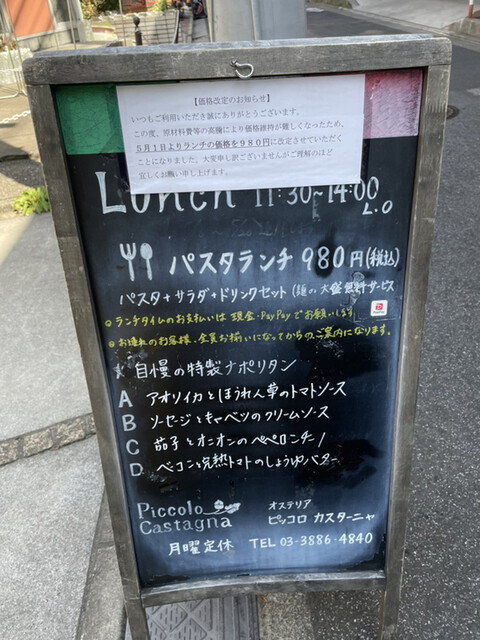 【価格改定のお知らせ】
いつもご利用いただき誠にありがとうございます。
この度、原材料費等の高騰により価格維持が難しくなったため、
5月1日よりランチの価格を980円に改定させていただく
ことになりました。大変申し訳ございませんがご理解のほど
宜しくお願い申し上げます。
Lunch 11:30~14:00
L.O
パスタランチ 980円(税込)
パスタ+サラダ+ドリンクセット(麺の大盛無料サービス
◎ランチタイムのお支払いは 現金・PayPayでお願いします
PayPay
◎お連れのお客様、全員お揃いになってからのご案内になります。
自慢の特製ナポリタン
A アオリイカとほうれん草のトマトソース
B ソーセージとキャベツのクリームソース
C 茄子とオニオンのペペロンチーノ
D ベーコンと完熟トマトのしょうゆバター
Piccolo
Castagna
オステリア
ピッコロ カスターニャ
月曜定休 TEL 03-3886-4840